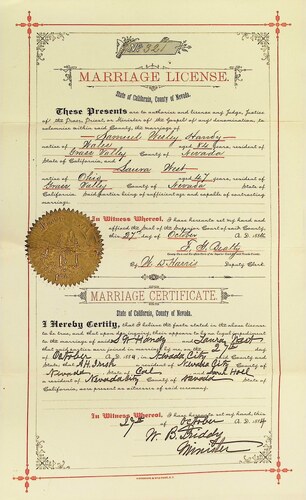 No 321
MARRIAGE LICENSE.
State of California, County of Nevada.
These Presents are to authorize and license any Judge, Justice
of the Peace, Priest, or Minister of the Gospel of any denomination, to
solemnize within said County, the marriage of
Samuel Wesley Handy
native of Wales aged 54 years, resident of
Grass Valley County of Nevada
State of California, and Laura West
native of Ohio aged 47 years, resident of
Grass Valley, County of Nevada State of
California. Said parties being of sufficient age and capable of contracting
marriage.
In Witness Whereof, I have hereunto set my hand and
affixed the Seal of the Superior Court of said County,
this 27 day of October A. D.
Clerk
By W. D. Harris Deputy Clerk
MARRIAGE CERTIFICATE.
State of California, County of Nevada.
I Hereby Certify, that I believe the facts stated in the above license
to be true, and that upon due inquiry, there appears to be no legal impediment
to the marriage of said S W Handy and Laura West
that said parties were joined in marriage by me, on the 27th
October A.D. in Nevada City County and
State; that A. H. Irish a resident of Nevada City County of
Nevada State of Cal and
a resident of Nevada City County of Nevada State of
California, were present as witnesses of said ceremony.
In Witness Whereof, I have hereunto set my hand, this
29th October A. D.
W. B.
Minister